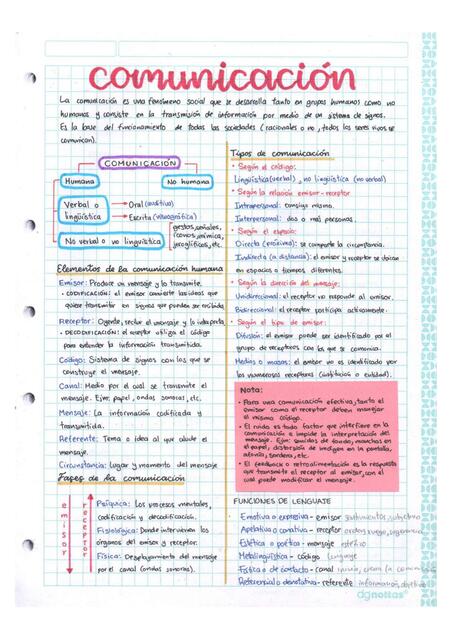 comunicación
La comunicación es una fenómeno social que se desarrolla tanto en grupos humanos como no
humanos y consiste en la transmisión de información por medio de un sistema de signos.
Es la base del funcionamiento de todas las sociedades (racionales o no, todos los seres vivos se
comunican).
COMUNICACIÓN
Humana
No humana
Verbal o
lingüística
Oral (auditiva)
Escrita (visuográfica)
No verbal o no lingüística
gestos, señales,
íconos, mímica,
jeroglíficos, etc.
Elementos de la comunicación humana
Emisor: Produce un mensaje y lo transmite.
• CODIFICACIÓN: el emisor convierte las ideas que
quiere transmitir en signos que pueden ser recibida
Receptor: Oyente, recibe el mensaje y lo interpreta.
• DECODIFICACIÓN: el receptor utiliza el código
para entender la información transmitida.
Código: Sistema de signos con los que se
construye el mensaje.
Canal: Medio por el cual se transmite el
mensaje. Ejm: papel, ondas sonoras, etc.
Mensaje: La información codificada y
transmitida.
Referente: Tema o idea al que alude el
mensaje.
Circunstancia: Lugar y momento del mensaje
Fases de la comunicación
emisor
receptor
Psíquica: Los procesos mentales,
codificación y decodificación.
Fisiológica: Donde intervienen los
órganos del emisor y receptor.
Física: Desplazamiento del mensaje
por el canal (ondas sonoras).
Tipos de comunicación
• Según el código:
Lingüística (verbal), no lingüística (no verbal)
• Según la relación emisor - receptor
Intrapersonal: consigo misma.
Interpersonal: dos o más personas.
• Según el espacio:
Directa (próxima): se comparte la circunstancia.
Indirecta (a distancia): el emisor y receptor se ubican
en espacios o tiempos diferentes.
• Según la dirección del mensaje:
Unidireccional: el receptor no responde al emisor.
Bidireccional: el receptor participa activamente.
• Según el tipo de emisor:
Difusión: el emisor puede ser identificado por el
grupo de receptores con los que se comunica.
Medios o masas: el emisor no es identificado por
los numerosos receptores (institución o entidad).
Nota:
• Para una comunicación efectiva, tanto el
emisor como el receptor deben manejar
el mismo código.
• El ruido es todo factor que interfiere en la
comunicación e impide la interpretación del
mensaje. Ejm: sonidos de fondo, manchas en
el papel, distorsión de imágen en la pantalla,
afonía, sordera, etc.
• El feedback o retroalimentación es la respuesta
que transmite el receptor al emisor, con el
cual puede modificar el mensaje.
FUNCIONES DE LENGUAJE
• Emotiva o expresiva - emisor sentimientos, subjetivo
• Apelativa o conativa - receptor orden, ruego, sugerencia
• Estética o poética - mensaje estético
• Metalingüística - código lenguaje
• Fática o de contacto - canal inicio, cierra la
• Referencial o denotativa - referente información, objetiva
dgnottas